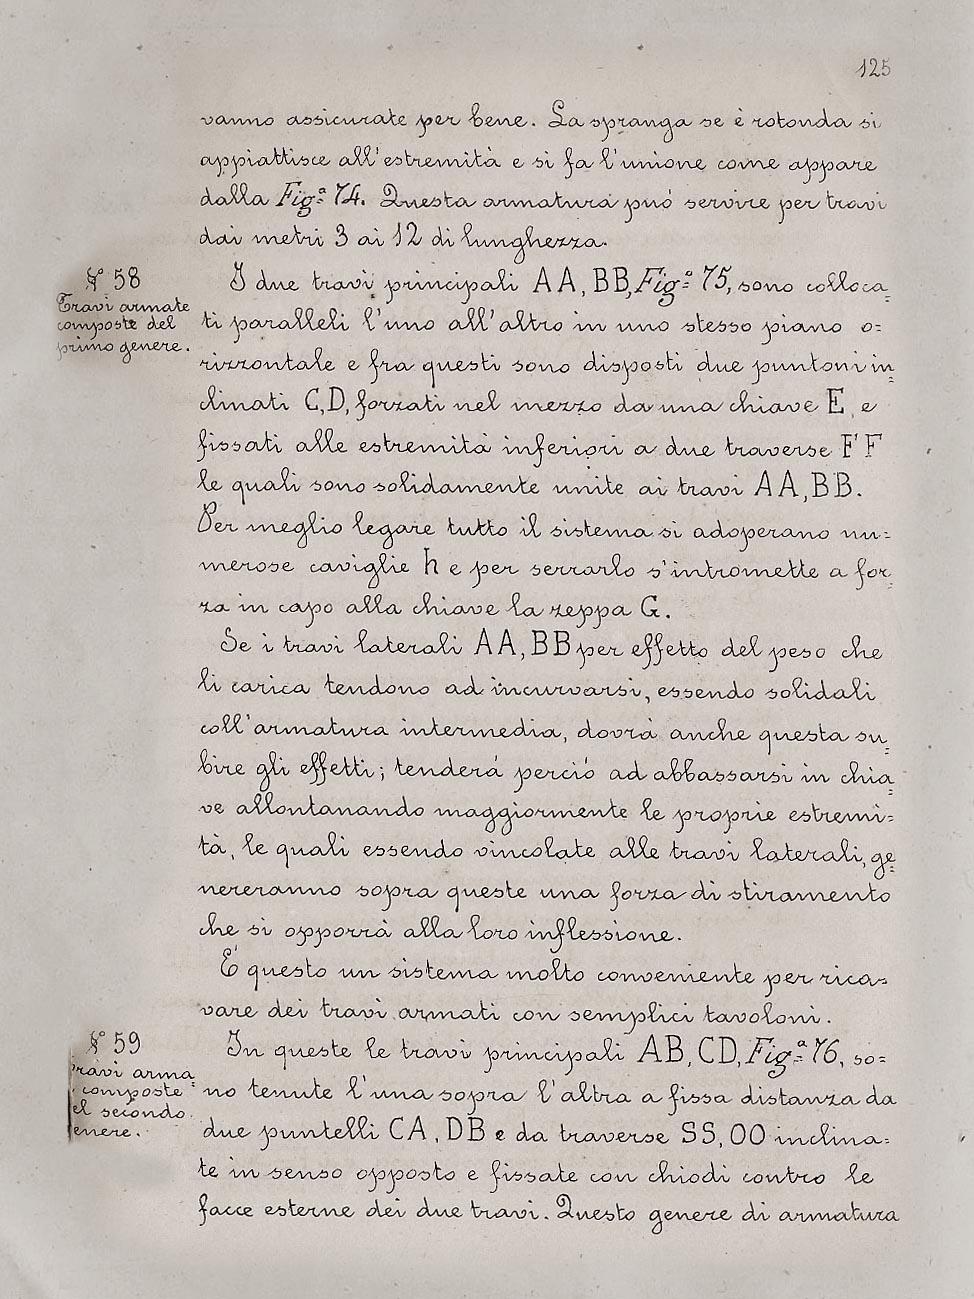 125
vanno assicurate per bene. La spranga se è rotonda si
appiattisce all'estremità e si fa l'unione come appare
dalla Fig.ª 74. Questa armatura può servire per travi
dai metri 3 ai 12 di lunghezza.
§° 58
Travi armate
composte del
primo genere.
I due travi principali AA, BB, Fig.ª 75, sono colloca=
ti paralleli l'uno all'altro in uno stesso piano o=
rizzontale e fra questi sono disposti due puntoni in=
clinati C, D, forzati nel mezzo da una chiave E, e
fissati alle estremità inferiori a due traverse F' F
le quali sono solidamente unite ai travi AA, BB.
Per meglio legare tutto il sistema si adoperano nu=
merose caviglie h e per serrarlo s'intromette a for=
za in capo alla chiave la zeppa G.
Se i travi laterali AA, BB per effetto del peso che
li carica tendono ad incurvarsi, essendo solidali
coll'armatura intermedia, dovrà anche questa su=
bire gli effetti; tenderá perció ad abbassarsi in chia=
ve allontanando maggiormente le proprie estremi=
tà, le quali essendo vincolate alle travi laterali, ge=
nereranno sopra queste una forza di stiramento
che si opporrà alla loro inflessione.
É questo un sistema molto conveniente per rica=
vare dei travi armati con semplici tavoloni.
§° 59
ravi arma=
composte
el secondo
enere.
In queste le travi principali AB, CD, Fig.ª 76, so=
no tenute l'una sopra l'altra a fissa distanza da
due puntelli CA, DB e da traverse SS, OO inclina=
te in senso opposto e fissate con chiodi contro le
facce esterne dei due travi. Questo genere di armatura